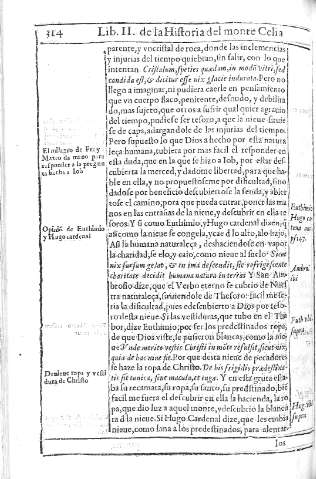 314
Lib. II. de la Historia del monte Celia
parente, y vn cristal de roca, donde las inclemencias
y injurias del tiempo quiebran, sin salir, con lo que
intentan Cristalum, species quædam, in modũ vitri, sed
candida est, & dicitur esse nix glacie indurata. Pero no
llego a imaginar, ni pudiera caerle en pensamiento
que vn cuerpo flaco, penitente, desnudo, y debilita
do, mas sujeto, que otra cosa à sufrir qual quier agravio
del tiempo, pudiese ser tesoro, a que la nieue siruie
se de capa, a largandole de las injurias del tiempo.
Pero supuesto lo que Dios a hecho por esta natura
leça humana, tubiera por mas facil el responder en
esta dada, que en la que se hizo a Iob, por estar des-
cubierta la merced, y dadome libertad, para que ha-
ble en ella, y no proponerseme por dificultad, sino
dadose por beneficio descubriose la senda, y abier
tose el camino, para que pueda entrar, poner las ma
nos en las entrañas de la nieue, y descubrir en ella te
soros. Y si como Euthimio, y Hugo cardenal dicen,
assi como la nieue se congela, y cae d lo alto, a lo baxo,
Assi la humana naturaleça, deshaciendose en vapor
la charidad, se elo, y caio, como nieue al suelo: Sicut
nix sursum gelat, & in imâ descendit, sic refrigescente
charitate decidit humana natura in terris Y San Am-
brosio dize, que el Verbo eterno se cubrio de Nues
tra naturaleça, siruiendole de
la dificultad, pues
es descubierto a Dios por teso-
ro desta nieue. Si las vestiduras, que tubo en el Tha
bor, dize Euthimio, por ser los predestinados ropa,
de que Dios viste, se pusieron blancas, como la nie-
ue Vnde merito vestis Christi in môte resulsit, sicut nix,
quia de hac nine fit. Por que desta nieue de pecadores
se haze la ropa de Christo. De his frigidis prædestina-
tis fit tunica, sint mundata, & toga. Y en esta gruta esta-
ba su recamara, su ropa, su sayo, su predestinado, bié
facil me fuera el descubrir en ella la hacienda, la ro
pa, que dio luz a aquel monte, y descubrio la blancu
ra d la nieue. Si Hugo Cardenal dize, que les embia
nieue, como lana a los predestinados, para alentar
los
El milagro de Fray
Marco da mano para
responder a la pregun
ta hecha a Iob
Opinió de Euthimio
y Hugo cardenal
Denieue ropa y vesti
dura de Christo
Euthimio
Hugo
Ambrosi
supra
Hug.
supra